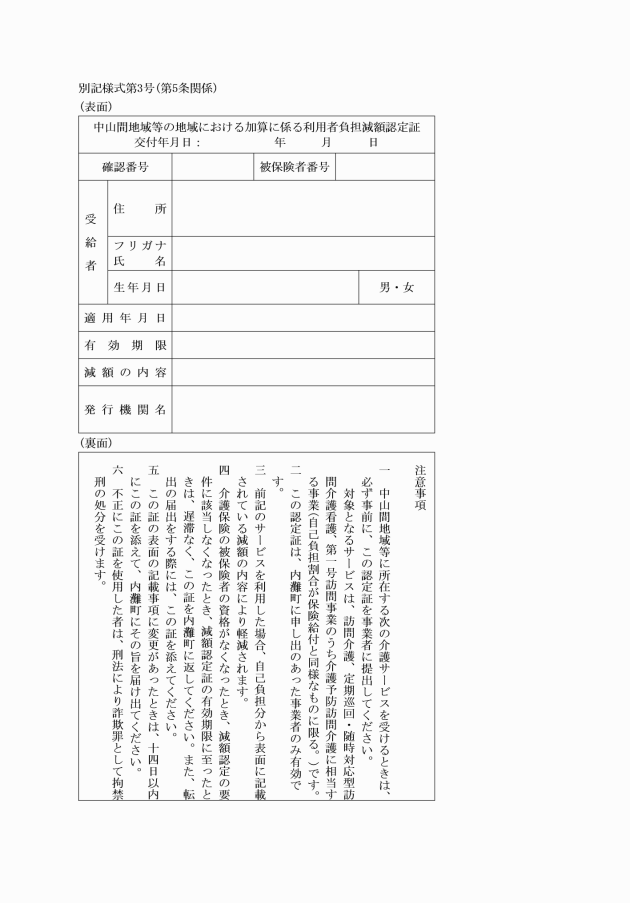 別記様式第3号(第5条関係)
(表面)
中山間地域等の地域における加算に係る利用者負担減額認定証
交付年月日： 年 月 日
確認番号 被保険者番号
受給者
住 所
フリガナ
氏 名
生年月日 男・女
適用年月日
有効期限
減額の内容
発行機関名
(裏面)
注意事項
一 中山間地域等に所在する次の介護サービスを受けるときは、
必ず事前に、この認定証を事業者に提出してください。
対象となるサービスは、訪問介護、定期巡回・随時対応型訪
問介護看護、第一号訪問事業のうち介護予防訪問介護に相当す
る事業(自己負担割合が保険給付と同様なものに限る。)です。
二 この認定証は、内灘町に申し出のあった事業者のみ有効で
す。
三 前記のサービスを利用した場合、自己負担分から表面に記載
されている減額の内容により軽減されます。
四 介護保険の被保険者の資格がなくなったとき、減額認定の要
件に該当しなくなったとき、減額認定証の有効期限に至ったと
きは、遅滞なく、この証を内灘町に返してください。また、転
出の届出をする際には、この証を添えてください。
五 この証の表面の記載事項に変更があったときは、十四日以内
にこの証を添えて、内灘町にその旨を届け出てください。
六 不正にこの証を使用した者は、刑法により詐欺罪として拘禁
刑の処分を受けます。